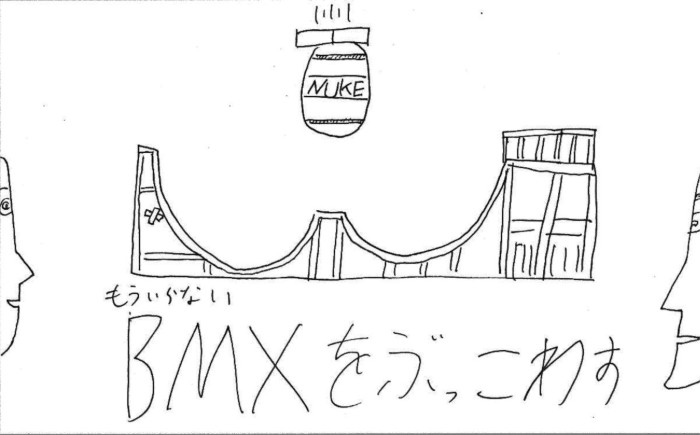 NUKE
もういらない
BMXをぶっこわす